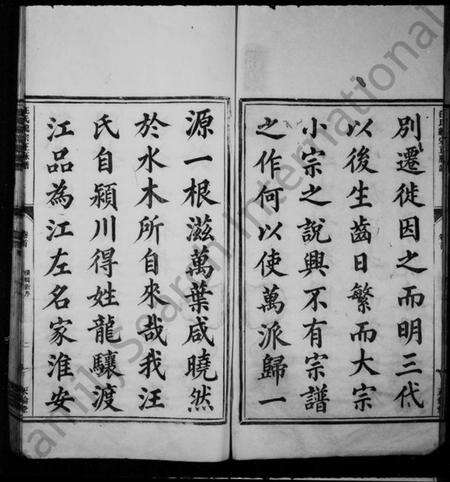 別遷徙因之而明三代
以後生齒日繁而大宗
小宗之說興不有宗譜
之作何以使萬派歸一
源一根滋萬葉咸曉然
於水木所自來哉我汪
氏自潁川得姓龍驤渡
江品為江左名家淮安
FamilySearch International